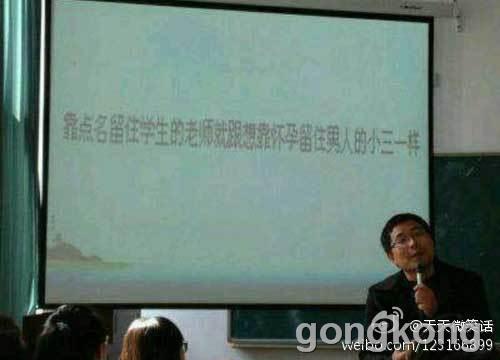 靠点名留住学生的老师就跟想靠怀孕留住男人的小三一样
@天天微笑话
gongkong
weibo.com/123166899